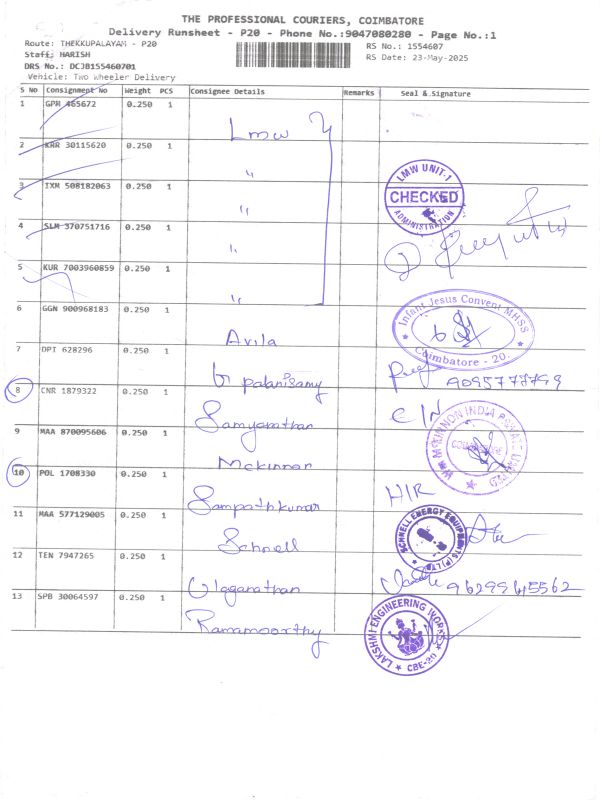 THE PROFESSIONAL COURIERS, COIMBATORE
Delivery Runsheet - P20 - Phone No.:9047080280 - Page No.:1
Route: THEKKUPALAYAM - P20
RS No.: 1554607
Staff: HARISH
RS Date: 23-May-2025
DRS No.: DCJB155460701
Vehicle: Two Wheeler Delivery
S No Consignment No Weight PCS Consignee Details Remarks Seal & Signature
1 GPM 465672 0.250 1
Lmw
2 KRR 30115620 0.250 1
"
3 IXM 508182063 0.250 1
LMW UNIT-1
CHECKED
ADMINISTRATION
"
4 SLM 370751716 0.250 1
"
5 KUR 7003960859 0.250 1
"
6 GGN 900968183 0.250 1
Infant Jesus Convent MHSS
Coimbatore - 20.
Avila
7 DPT 628296 0.250 1
G palanisamy
9095777799
8 CNR 1879322 0.250 1
C/N
9 MAA 870095606 0.250 1
Mckinnon
10 POL 1708330 0.250 1
Sampathkumar
H/R
11 MAA 577129005 0.250 1
Schnell
SCHNELL ENERGY EQUIPMENTS (P) LTD
12 TEN 7947265 0.250 1
Ulaganathan
9629945562
13 SPB 30064597 0.250 1
Ramamoorthy
LAKSHMI ENGINEERING WORKS
CBE-20